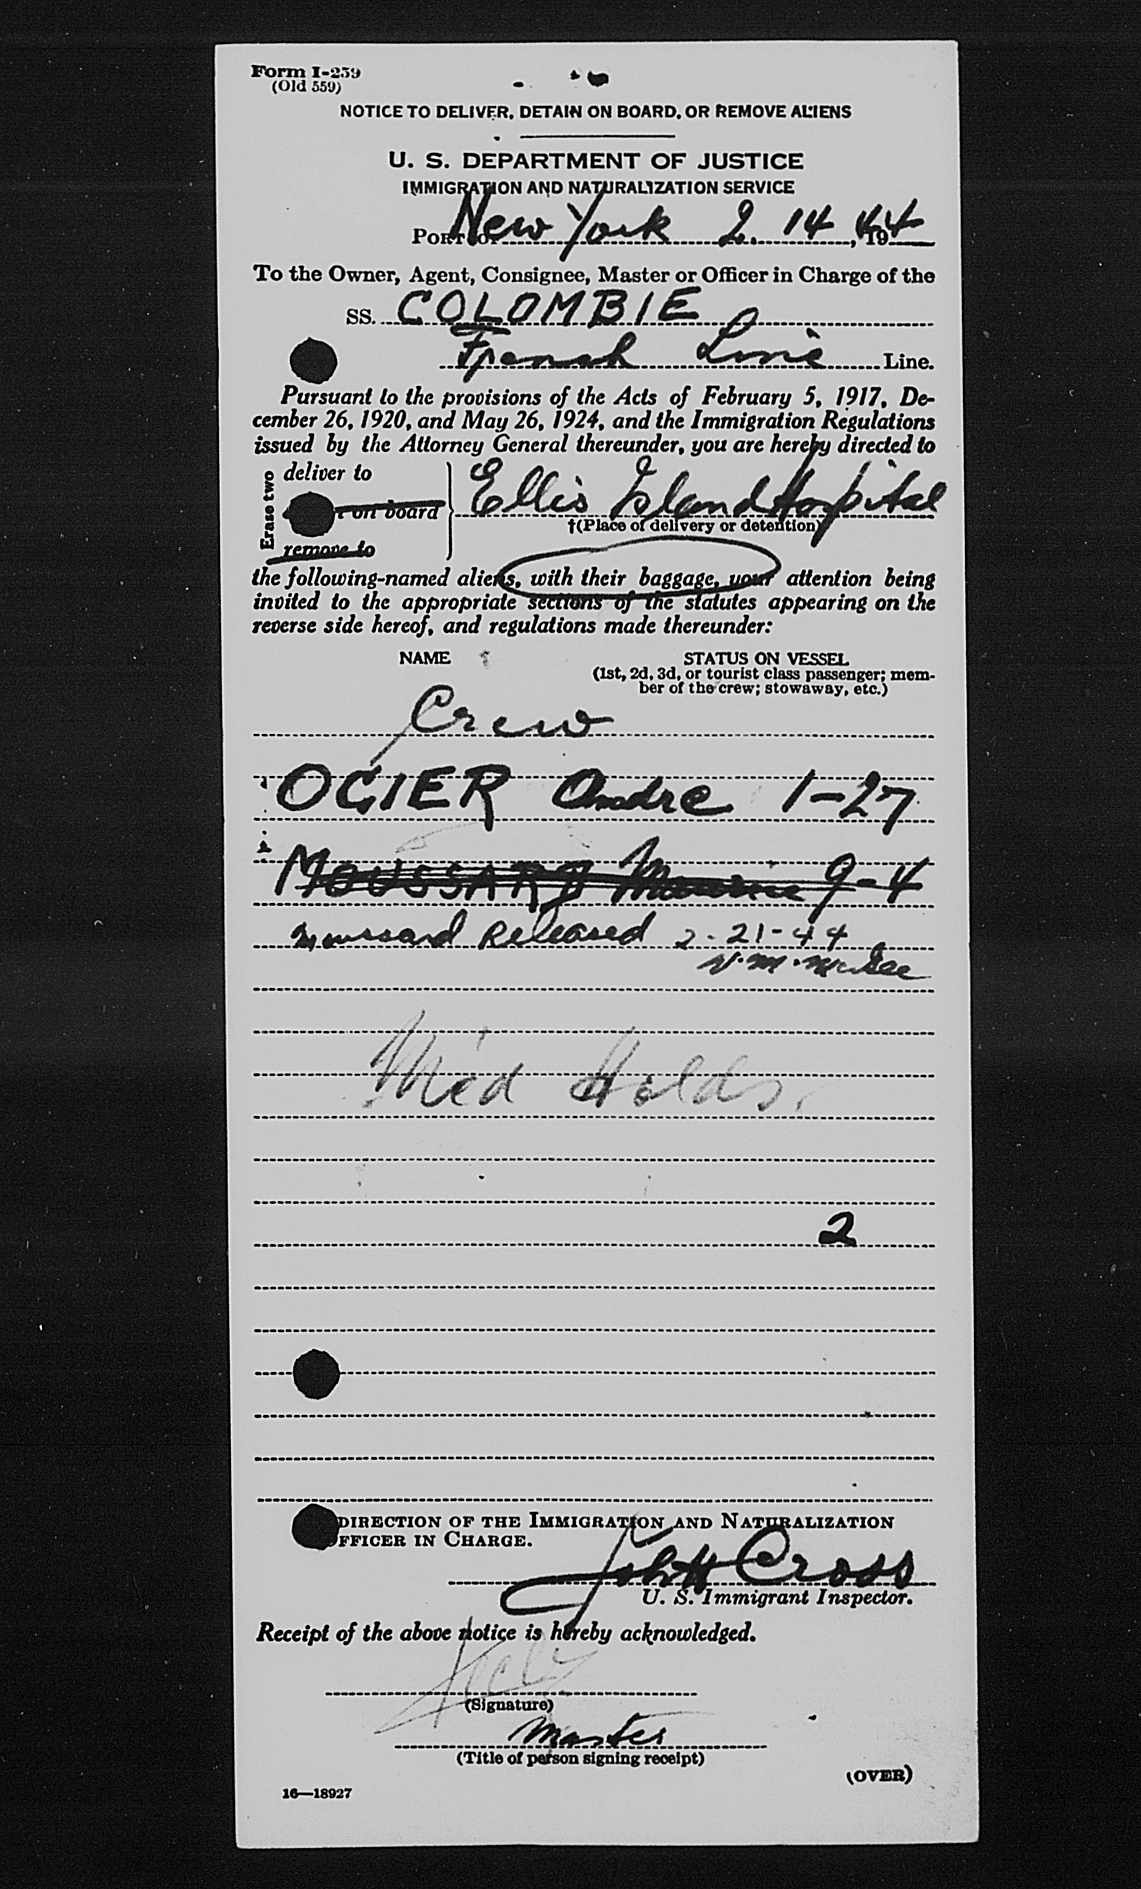 Form I-259
(Old 559)
NOTICE TO DELIVER, DETAIN ON BOARD, OR REMOVE ALIENS
U. S. DEPARTMENT OF JUSTICE
IMMIGRATION AND NATURALIZATION SERVICE
PORT OF New York 2. 14, 1944
To the Owner, Agent, Consignee, Master or Officer in Charge of the
SS. COLOMBIE
French Line Line.
Pursuant to the provisions of the Acts of February 5, 1917, De-
cember 26, 1920, and May 26, 1924, and the Immigration Regulations
issued by the Attorney General thereunder, you are hereby directed to
Erase two
deliver to
on board
remove to
Ellis Island Hospital
†(Place of delivery or detention)
the following-named aliens, with their baggage, your attention being
invited to the appropriate sections of the statutes appearing on the
reverse side hereof, and regulations made thereunder:
NAME STATUS ON VESSEL
(1st, 2d, 3d, or tourist class passenger; mem-
ber of the crew; stowaway, etc.)
Crew
OGIER Andre 1-27
MOUSSARD Maurice 9-4
Moussard Released 2-21-44
Med Holds.
2
DIRECTION OF THE IMMIGRATION AND NATURALIZATION
OFFICER IN CHARGE.
John H Cross
U. S. Immigrant Inspector.
Receipt of the above notice is hereby acknowledged.
(Signature)
Master
(Title of person signing receipt)
(OVER)
16—18927